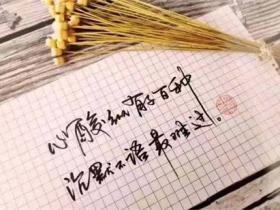 心酸纵有百种
沉默不语最难过。